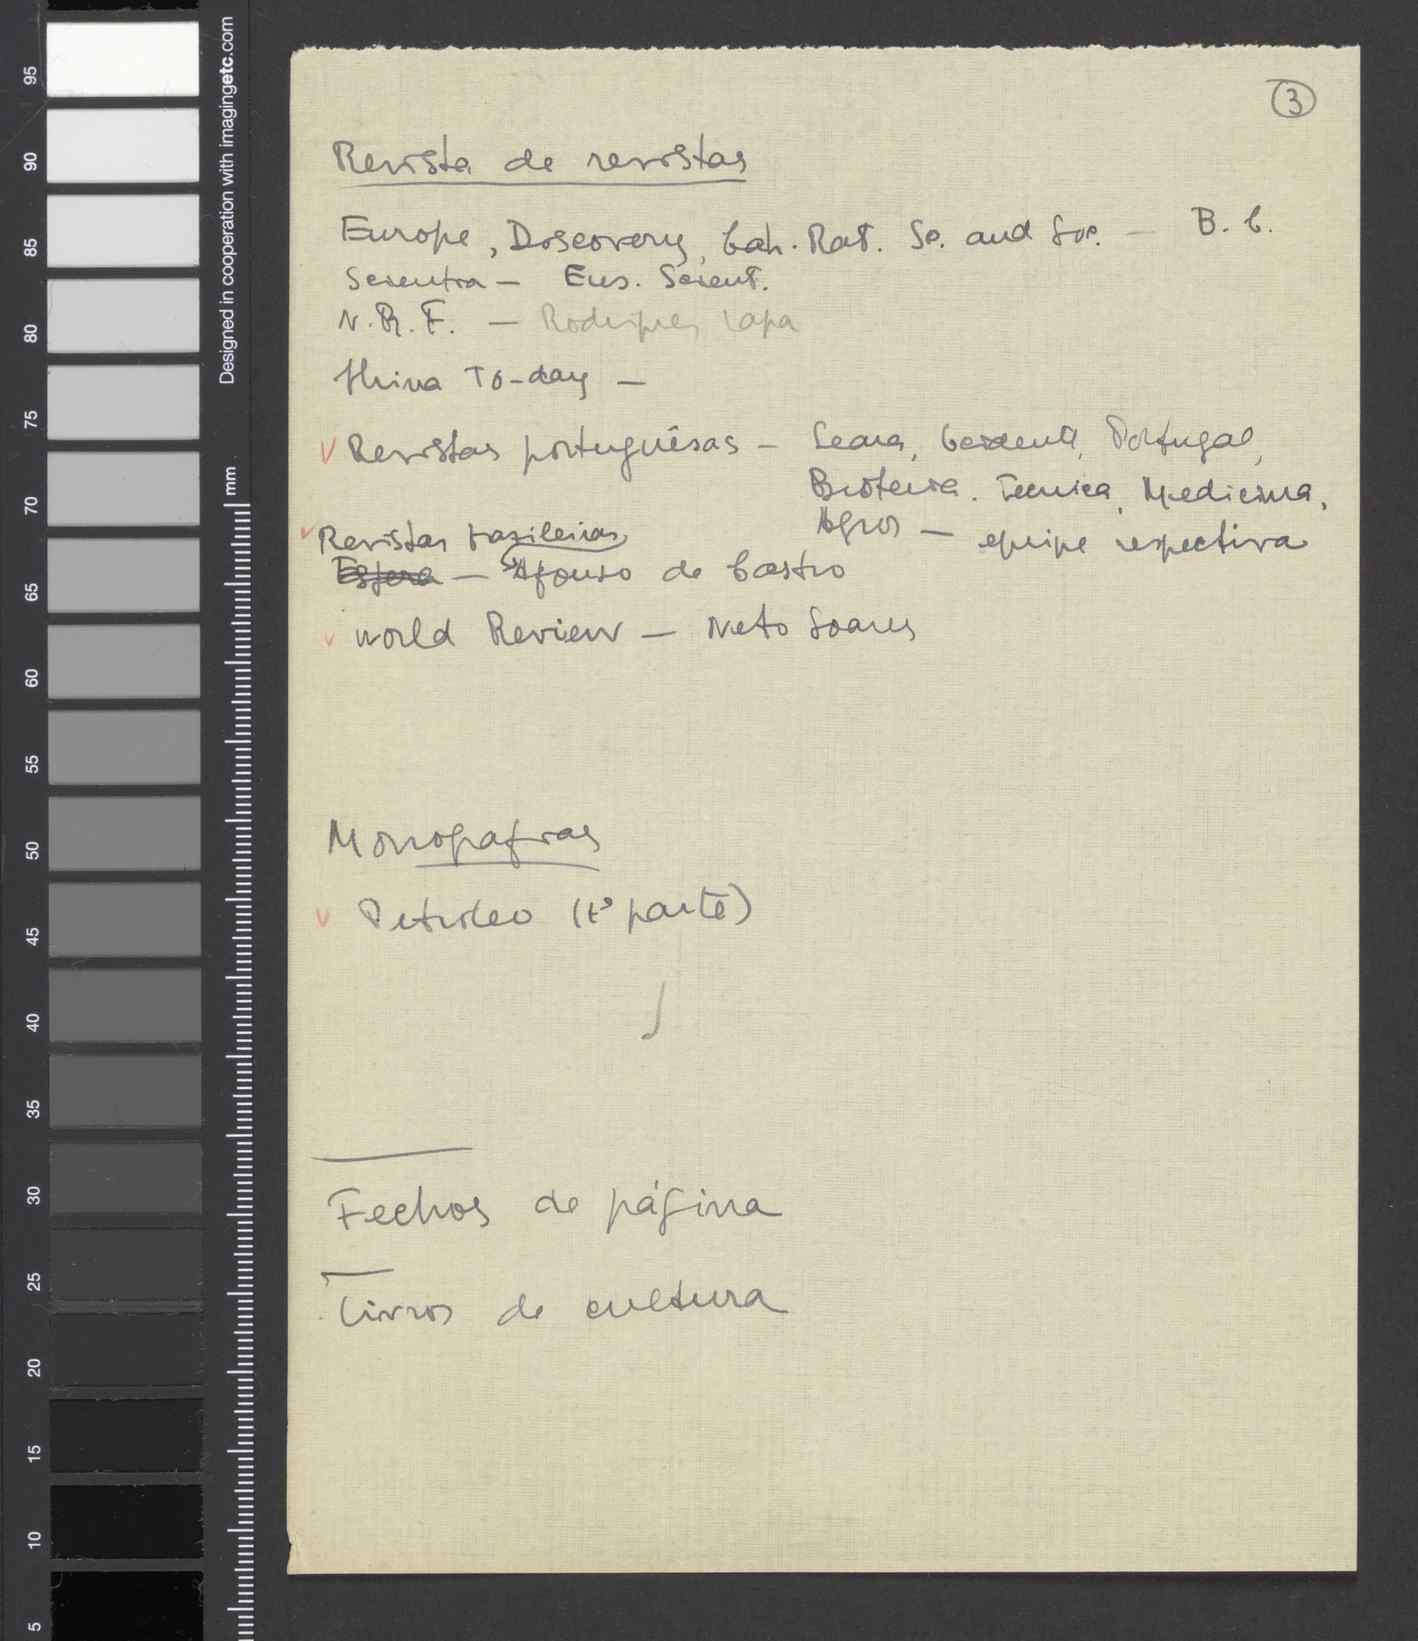 3
Revista de revistas
Europe, Discovery, Cah. Rat. Sc. and Soc. — B. C.
Scientia — Ens. Scient.
N. R. F. — Rodrigues Lapa
China To-day —
Revistas portuguêsas — Seara, Ocidente, Portugal,
Brotéria. Técnica, Medicina,
Agros — equipe respectiva
Revistas brasileiras
Esfera — Afonso de Castro
World Review — Neto Soares
Monografias
Petróleo (1ª parte)
Fechos de página
Livros de cultura
Designed in cooperation with imagingetc.com
mm
95
90
85
80
75
70
65
60
55
50
45
40
35
30
25
20
15
10
5